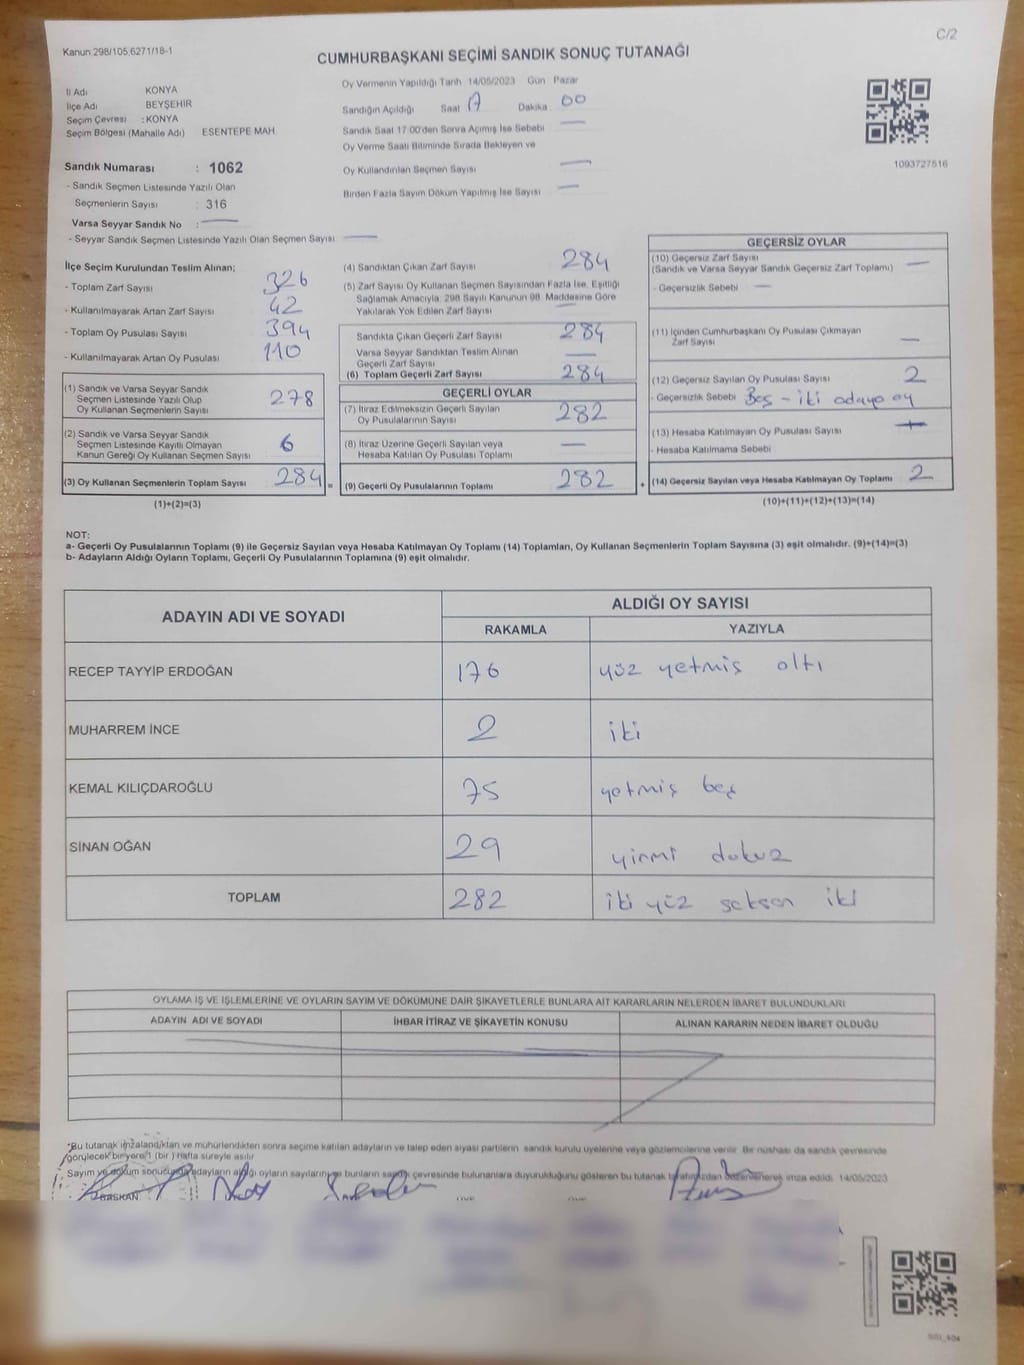 C/2
Kanun 298/105,6271/18-1
CUMHURBAŞKANI SEÇİMİ SANDIK SONUÇ TUTANAĞI
İl Adı KONYA
İlçe Adı BEYŞEHİR
Seçim Çevresi : KONYA
Seçim Bölgesi (Mahalle Adı) ESENTEPE MAH.
Oy Vermenin Yapıldığı Tarih 14/05/2023 Gün Pazar
Sandığın Açıldığı Saat 17 Dakika 00
Sandık Saat 17:00'den Sonra Açımış İse Sebebi —
Oy Verme Saati Bitiminde Sırada Bekleyen ve
Oy Kullandırılan Seçmen Sayısı —
Birden Fazla Sayım Döküm Yapılmış İse Sayısı —
1093727516
Sandık Numarası : 1062
- Sandık Seçmen Listesinde Yazılı Olan
Seçmenlerin Sayısı : 316
Varsa Seyyar Sandık No : —
- Seyyar Sandık Seçmen Listesinde Yazılı Olan Seçmen Sayısı: —
İlçe Seçim Kurulundan Teslim Alınan;
- Toplam Zarf Sayısı 326
- Kullanılmayarak Artan Zarf Sayısı 42
- Toplam Oy Pusulası Sayısı 394
- Kullanılmayarak Artan Oy Pusulası 110
(1) Sandık ve Varsa Seyyar Sandık
Seçmen Listesinde Yazılı Olup
Oy Kullanan Seçmenlerin Sayısı 278
(2) Sandık ve Varsa Seyyar Sandık
Seçmen Listesinde Kayıtlı Olmayan
Kanun Gereği Oy Kullanan Seçmen Sayısı 6
(3) Oy Kullanan Seçmenlerin Toplam Sayısı 284 =
(1)+(2)=(3)
(4) Sandıktan Çıkan Zarf Sayısı 284
(5) Zarf Sayısı Oy Kullanan Seçmen Sayısından Fazla İse, Eşitliği
Sağlamak Amacıyla, 298 Sayılı Kanunun 98. Maddesine Göre
Yakılarak Yok Edilen Zarf Sayısı —
Sandıkta Çıkan Geçerli Zarf Sayısı 284
Varsa Seyyar Sandıktan Teslim Alınan
Geçerli Zarf Sayısı —
(6) Toplam Geçerli Zarf Sayısı 284
GEÇERLİ OYLAR
(7) İtiraz Edilmeksizin Geçerli Sayılan
Oy Pusulalarının Sayısı 282
(8) İtiraz Üzerine Geçerli Sayılan veya
Hesaba Katılan Oy Pusulası Toplamı —
(9) Geçerli Oy Pusulalarının Toplamı 282 +
GEÇERSİZ OYLAR
(10) Geçersiz Zarf Sayısı —
(Sandık ve Varsa Seyyar Sandık Geçersiz Zarf Toplamı)
- Geçersizlik Sebebi —
(11) İçinden Cumhurbaşkanı Oy Pusulası Çıkmayan
Zarf Sayısı —
(12) Geçersiz Sayılan Oy Pusulası Sayısı 2
- Geçersizlik Sebebi Boş - iki adaya oy
(13) Hesaba Katılmayan Oy Pusulası Sayısı —
- Hesaba Katılmama Sebebi
(14) Geçersiz Sayılan veya Hesaba Katılmayan Oy Toplamı 2
(10)+(11)+(12)+(13)=(14)
NOT:
a- Geçerli Oy Pusulalarının Toplamı (9) ile Geçersiz Sayılan veya Hesaba Katılmayan Oy Toplamı (14) Toplamları, Oy Kullanan Seçmenlerin Toplam Sayısına (3) eşit olmalıdır. (9)+(14)=(3)
b- Adayların Aldığı Oyların Toplamı, Geçerli Oy Pusulalarının Toplamına (9) eşit olmalıdır.
ADAYIN ADI VE SOYADI
ALDIĞI OY SAYISI
RAKAMLA YAZIYLA
RECEP TAYYİP ERDOĞAN 176 yüz yetmiş altı
MUHARREM İNCE 2 iki
KEMAL KILIÇDAROĞLU 75 yetmiş beş
SİNAN OĞAN 29 yirmi dokuz
TOPLAM 282 iki yüz seksen iki
OYLAMA İŞ VE İŞLEMLERİNE VE OYLARIN SAYIM VE DÖKÜMÜNE DAİR ŞİKAYETLERLE BUNLARA AİT KARARLARIN NELERDEN İBARET BULUNDUKLARI
ADAYIN ADI VE SOYADI İHBAR İTİRAZ VE ŞİKAYETİN KONUSU ALINAN KARARIN NEDEN İBARET OLDUĞU
*Bu tutanak imzalandıktan ve mühürlendikten sonra seçime katılan adayların ve talep eden siyasi partilerin sandık kurulu üyelerine veya gözlemcilerine verilir. Bir nüshası da sandık çevresinde
görülecek bir yere 1 (bir) hafta süreyle asılır.
Sayım ve döküm sonucunda adayların aldığı oyların sayılarını ve bunların sandık çevresinde bulunanlara duyurulduğunu gösteren bu tutanak tarafımızdan düzenlenerek imza edildi. 14/05/2023
BAŞKAN